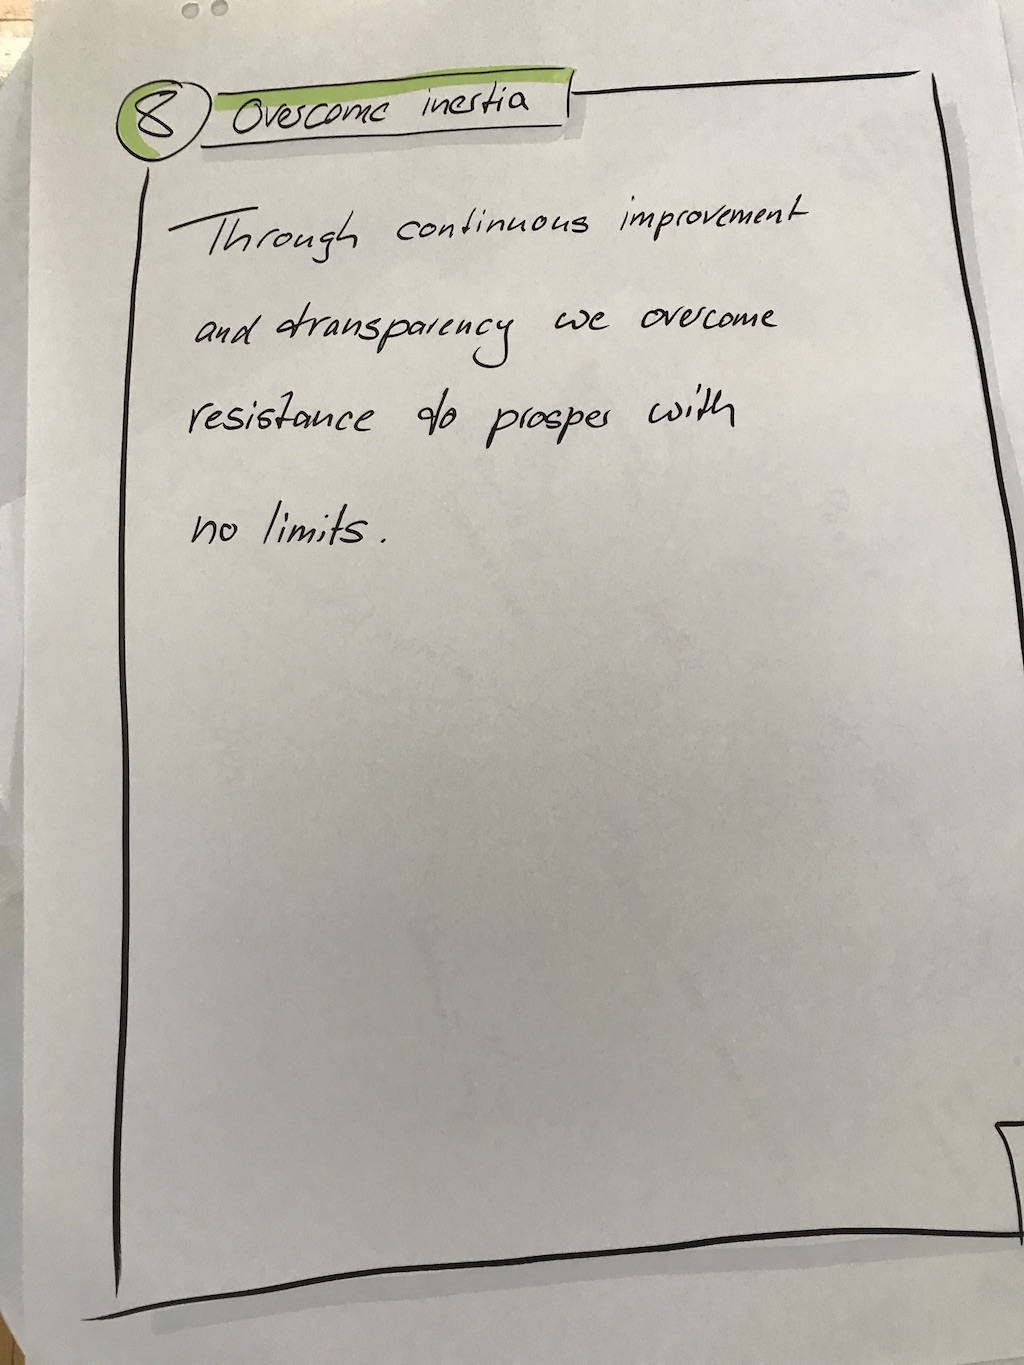 8 Overcome inertia
Through continuous improvement
and transparency we overcome
resistance to prosper with
no limits.